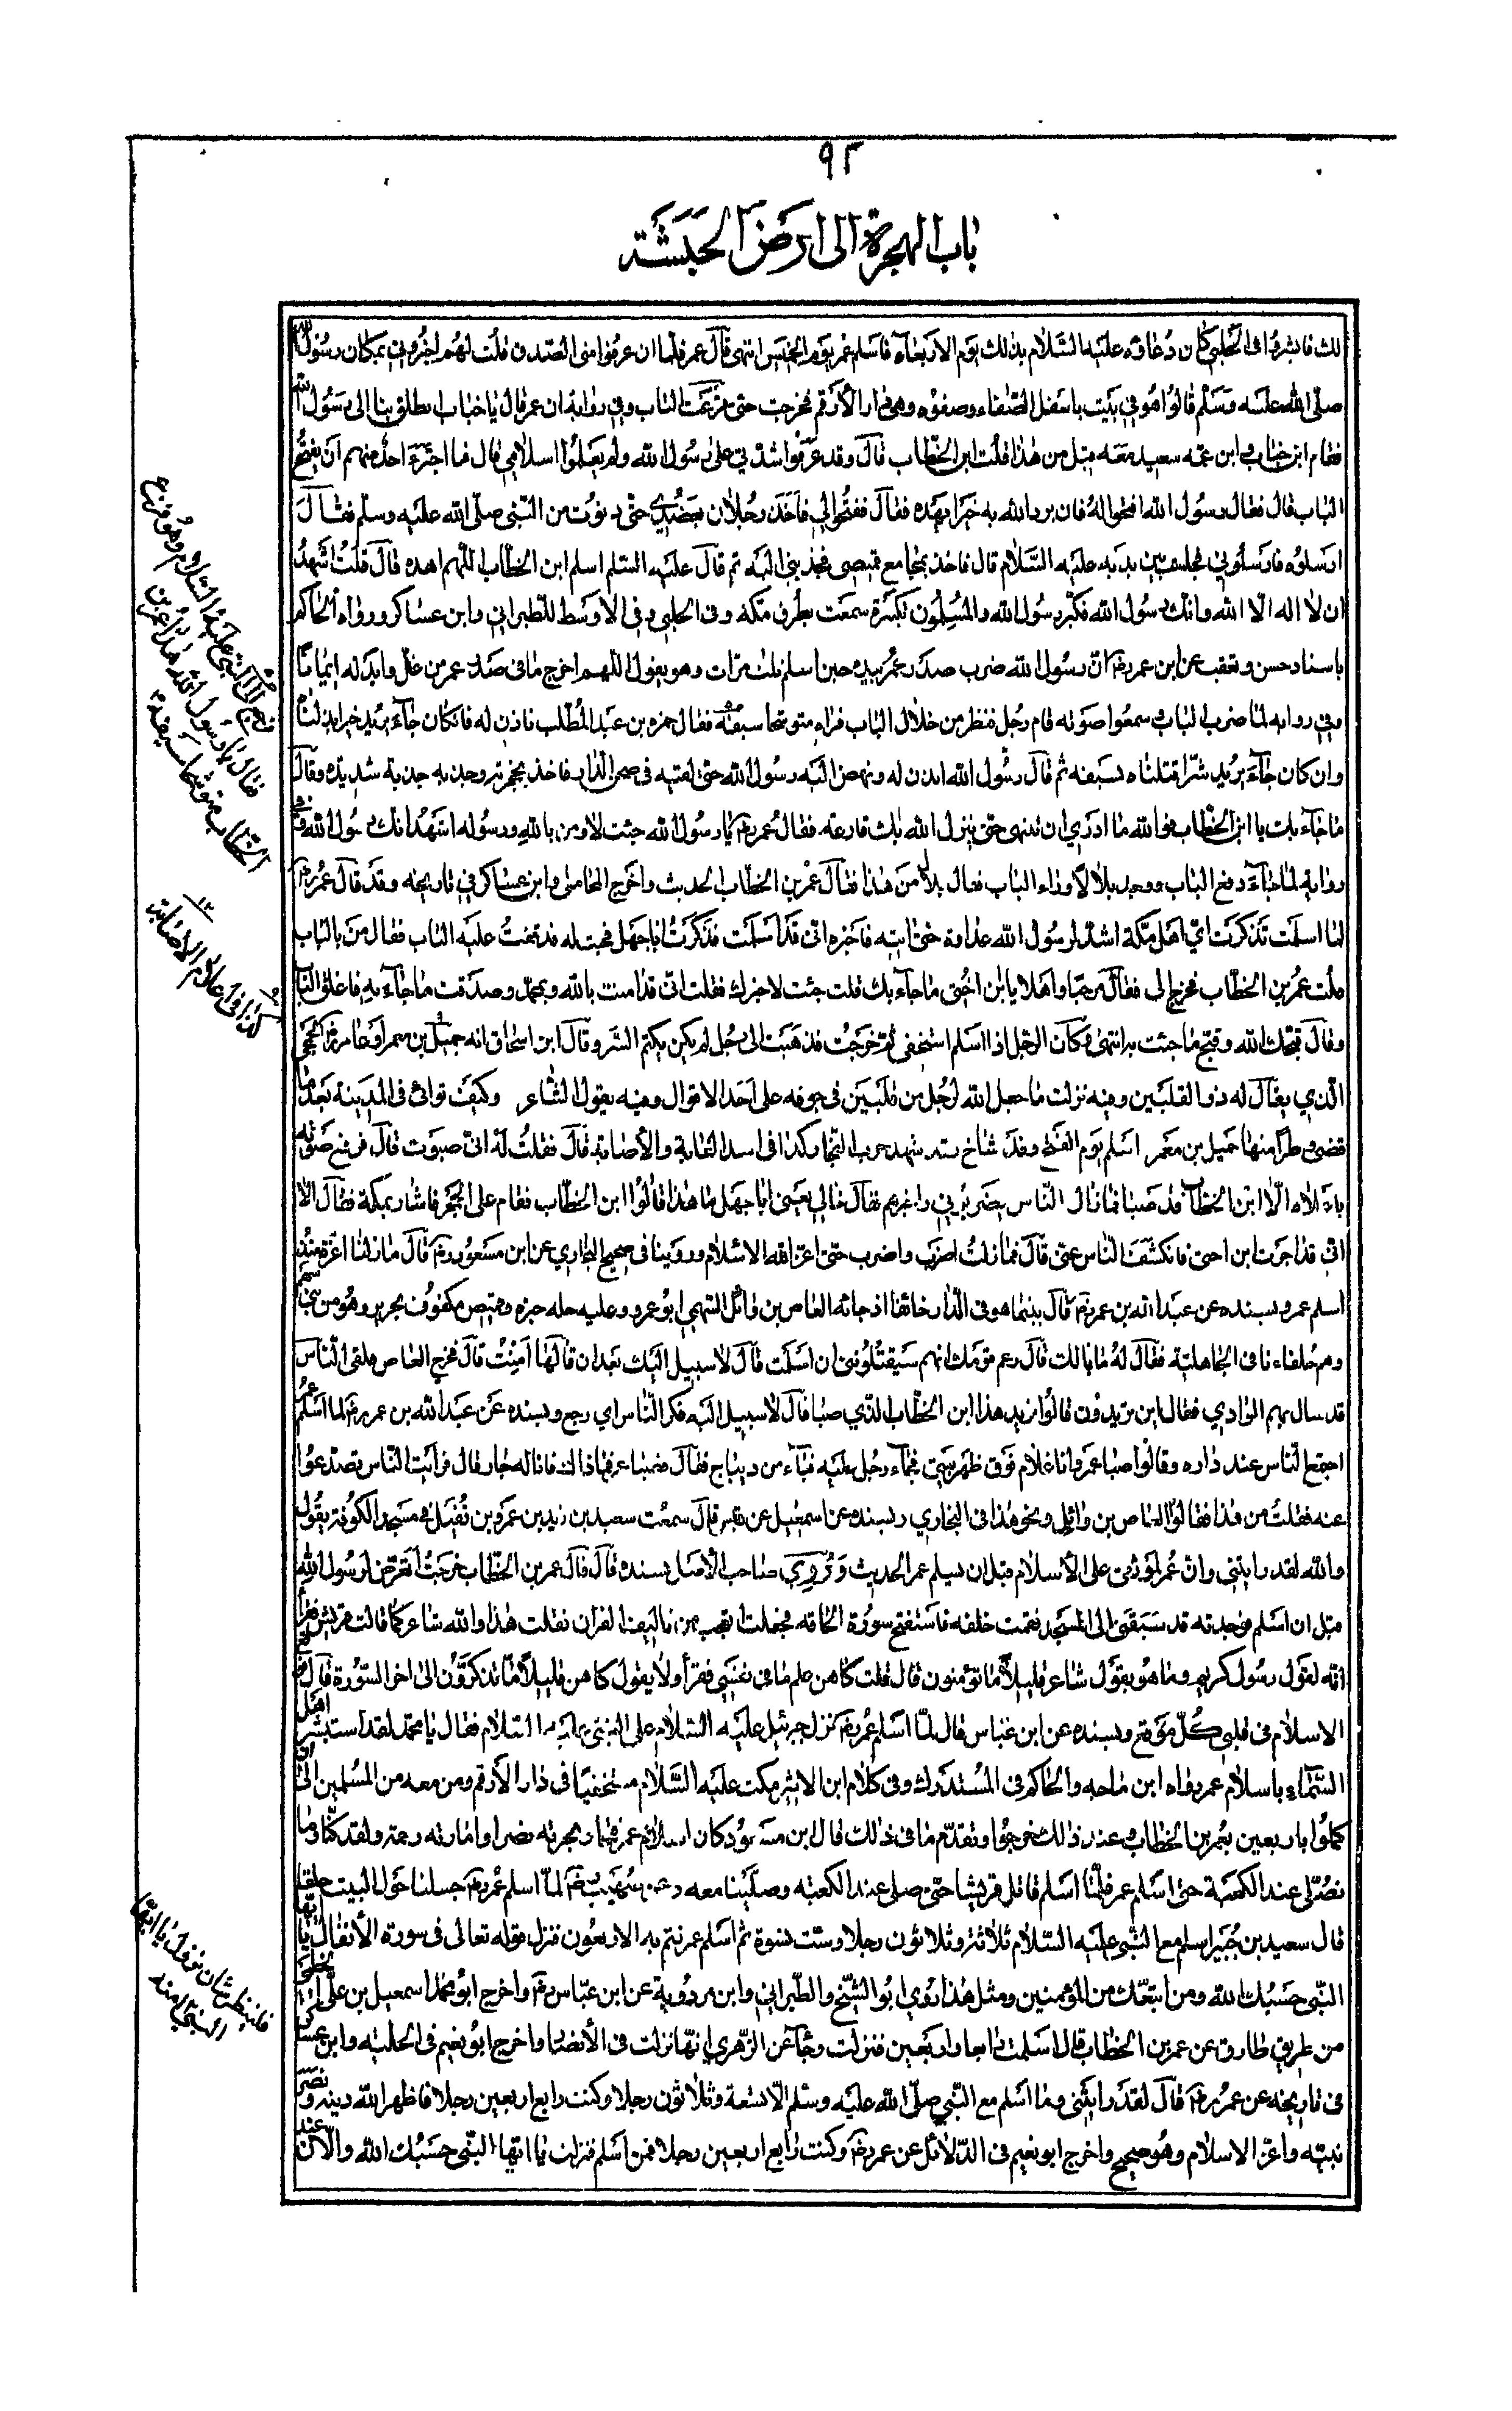 ٩٢
باب الهجرة الى ارض الحبشة
لك فابشروا في الحلبي كان دعاؤه عليه السلام بذلك يوم الاربعاء فاسلم عمر يوم الخميس انتهى قال عمر فلما ان عرفوا مني الصدق قلت لهم اخبروني بمكان رسول الله
صلى الله عليه وسلم قالوا هو في بيت باسفل الصفا وصفوه وهي دار الأرقم فخرجت حتى قرعت الباب وفي رواية ان عمر قال يا خباب انطلق بنا الى رسول الله
فقام ابن خباب وابن عمه سعيد معه قيل من هذا قلت ابن الخطاب قال وقد عرفوا شدتي على رسول الله ولم يعلموا اسلامي قال فما اجترء احد منهم ان يفتح
الباب قال فقال رسول الله افتحوا له فان يرد الله به خيرا يهده فقال ففتحوا لي فاخذ رجلان بعضدي حتى دنوت من النبي صلى الله عليه وسلم فقال
ارسلوه فارسلوني فجلست بين يديه عليه السلام قال فاخذ بمجامع قميصي فجذبني اليه ثم قال عليه السلم اسلم ابن الخطاب اللهم اهده قال قلت اشهد
ان لا اله الا الله وانك رسول الله فكبر رسول الله والمسلمون تكبيرة سمعت بطرق مكة وفي الحلبي وفي الاوسط للطبراني وابن عساكر ورواه الحاكم
باسناد حسن وتعقب عن ابن عمر رضه ان رسول الله ضرب صدر عمر بيده حين اسلم ثلث مرات وهو يقول اللهم اخرج ما في صدر عمر من غل وابدله ايمانا
وفي رواية لما ضرب الباب وسمعوا صوته قام رجل فنظر من خلال الباب فراه متوشحا سيفه فقال حمزه بن عبد المطلب فاذن له فان كان جآء يريد خيرا بذلناه
وان كان جآء يريد شرا قتلناه بسيفه ثم قال رسول الله اذن له ونهض اليه رسول الله حتى لقيه في صحن الدار فاخذ بحجزته وجذبه جذبة شديدة وقال
ما جآء بك يا ابن الخطاب فوالله ما ادري ان تنتهى حتى ينزل الله بك قارعه فقال عمر رضه يا رسول الله جئت لاومن بالله ورسوله اشهد انك رسول الله وفي
رواية لما جآء دفع الباب فوجد بلالا وراء الباب فقال بلال من هذا فقال عمر بن الخطاب الحديث واخرج المحاملى وابن عساكر في تاريخه وقد قال عمر رضه
لما اسلمت تذكرت اي اهل مكة اشد لرسول الله عداوة حتى آتيه فاخبره اني قد اسلمت فذكرت ابا جهل فجئت له فدققت عليه الباب فقال من بالباب
قلت عمر بن الخطاب فخرج الي فقال مرحبا واهلا يا ابن اختي ما جاء بك قلت جئت لاخبرك فقلت اني قد امنت بالله وبمحمد وصدقت ما جآء به فاغلق الباب
وقال قبحك الله وقبح ما جئت به انتهى وكان الرجل اذا اسلم استخفى ثم خرجت فذهبت الى رجل لم يكن يكتم السر وقال ابن اسحاق انه جميل بن معمر الجمحي
الذي يقال له ذو القلبين وفيه نزلت ما جعل الله لرجل من قلبين في جوفه على احد الاقوال وفيه يقول الشاعر وكيف ثوائي في المدينة بعد ما
قضى وطرا منها جميل بن معمر اسلم يوم الفتح وقد شاخ شهد حرب الفجار كذا في اسد الغابة والأصابة قال فقلت له اني صبوت قال فرفع صوته
باعلاه الا ابن الخطاب قد صبا فما زال الناس يضربوني واضربهم فقال خالي يعني ابا جهل ما هذا قالوا ابن الخطاب فقام على الحجر فاشار بكمه فقال الا
اني قد اجرت ابن اختي فانكشف الناس عني قال فما زلت اضرب واضرب حتى اعز الله الاسلام وروينا في صحيح البخاري عن ابن مسعود رضه قال ما زلنا اعزة منذ
اسلم عمر وبسنده عن عبد الله بن عمر رضه قال بينما هو في الدار خائفا اذ جائه العاص بن وائل السهمي ابو عمرو وعليه حله حبرة وقميص مكفوف بحرير وهو من بني سهم
وهم حلفاءنا في الجاهلية فقال له ما بالك قال زعم قومك انهم سيقتلونني ان اسلمت قال لا سبيل اليك بعد ان قالها امنت قال فخرج العاص فلقى الناس
قد سال بهم الوادي فقال اين تريدون قالوا نريد هذا ابن الخطاب الذي صبا قال لا سبيل اليه فكر الناس اي رجع وبسنده عن عبد الله بن عمر رضه لما اسلم عمر
اجتمع الناس عند داره وقالوا صبا عمر وانا غلام فوق ظهر بيتي فجآء رجل عليه قباء من ديباج فقال صبا عمر فما ذاك فانا له جار قال فرأيت الناس تصدعوا
عنه فقلت من هذا فقالوا العاص بن وائل ونحو هذا في البخاري وبسنده عن اسمعيل عن قيس قال سمعت سعيد بن زيد بن عمرو بن نفيل في مسجد الكوفة يقول
والله لقد رايتني وان عمر لموثقي على الأسلام قبل ان يسلم عمر الحديث وروي صاحب الأصل بسنده قال قال عمر بن الخطاب خرجت اتعرض لرسول الله
قبل ان اسلم فوجدته قد سبقني الى المسجد فقمت خلفه فاستفتح سورة الحاقة فجعلت اتعجب من تاليف القران فقلت هذا والله شاعر كما قالت قريش فقرأ
انه لقول رسول كريم وما هو بقول شاعر قليلا ما تؤمنون قال قلت كاهن علم ما في نفسي فقرأ ولا بقول كاهن قليلا ما تذكرون الى اخر السورة قال فوقع
الاسلام في قلبي كل موقع وبسنده عن ابن عباس قال لما اسلم عمر رضه نزل جبرئيل عليه السلام على النبي عليه السلام فقال يا محمد لقد استبشر اهل
السماء باسلام عمر رواه ابن ماجه والحاكم في المستدرك وفي كلام ابن الاثير مكث عليه السلام مستخفيا في دار الأرقم ومن معه من المسلمين الى ان
كملوا باربعين بعمر بن الخطاب وعند ذلك خرجوا وتقدم ما في ذلك قال ابن مسعود كان اسلام عمر فتحا وهجرته نصرا وامارته رحمة ولقد كنا وما
نصلى عند الكعبة حتى اسلم عمر فلما اسلم قاتل قريشا حتى صلى عند الكعبه وصلينا معه وعن صهيب رضه لما اسلم عمر رضه جلسنا حول البيت حلقا
قال سعيد بن جبير اسلم مع النبي عليه السلام ثلاثة وثلاثون رجلا وست نسوة ثم اسلم عمر فتم به الاربعون فنزل قوله تعالى في سورة الأنفال يا ايها
النبي حسبك الله ومن اتبعك من المؤمنين ومثل هذا روي ابو الشيخ والطبراني وابن مردوية عن ابن عباس رضه واخرج ابو محمد اسمعيل بن علي الخطبي
من طريق طارق عن عمر بن الخطاب قال اسلمت رابعا واربعين فنزلت وجآء عن الزهري انها نزلت في الأنصار واخرج ابو نعيم في الحلية وابن عساكر
في تاريخه عن عمر رضه قال لقد رايتني وما اسلم مع النبي صلى الله عليه وسلم الا تسعة وثلاثون رجلا وكنت رابع اربعين رجلا فاظهر الله دينه ونصر
نبيه واعز الاسلام وهو صحيح واخرج ابو نعيم في الدلائل عن عمر رضه وكنت رابع اربعين رجلا فمن اسلم فنزلت يا ايها النبي حسبك الله والآن عند
فرجع الى النبي عليه السلام وهو فزع
فقال يا رسول الله هذا عمر بن
الخطاب متوشحا سيفه
كذا في الاصابة
فلينظر شان نزول يا ايها
النبي منه